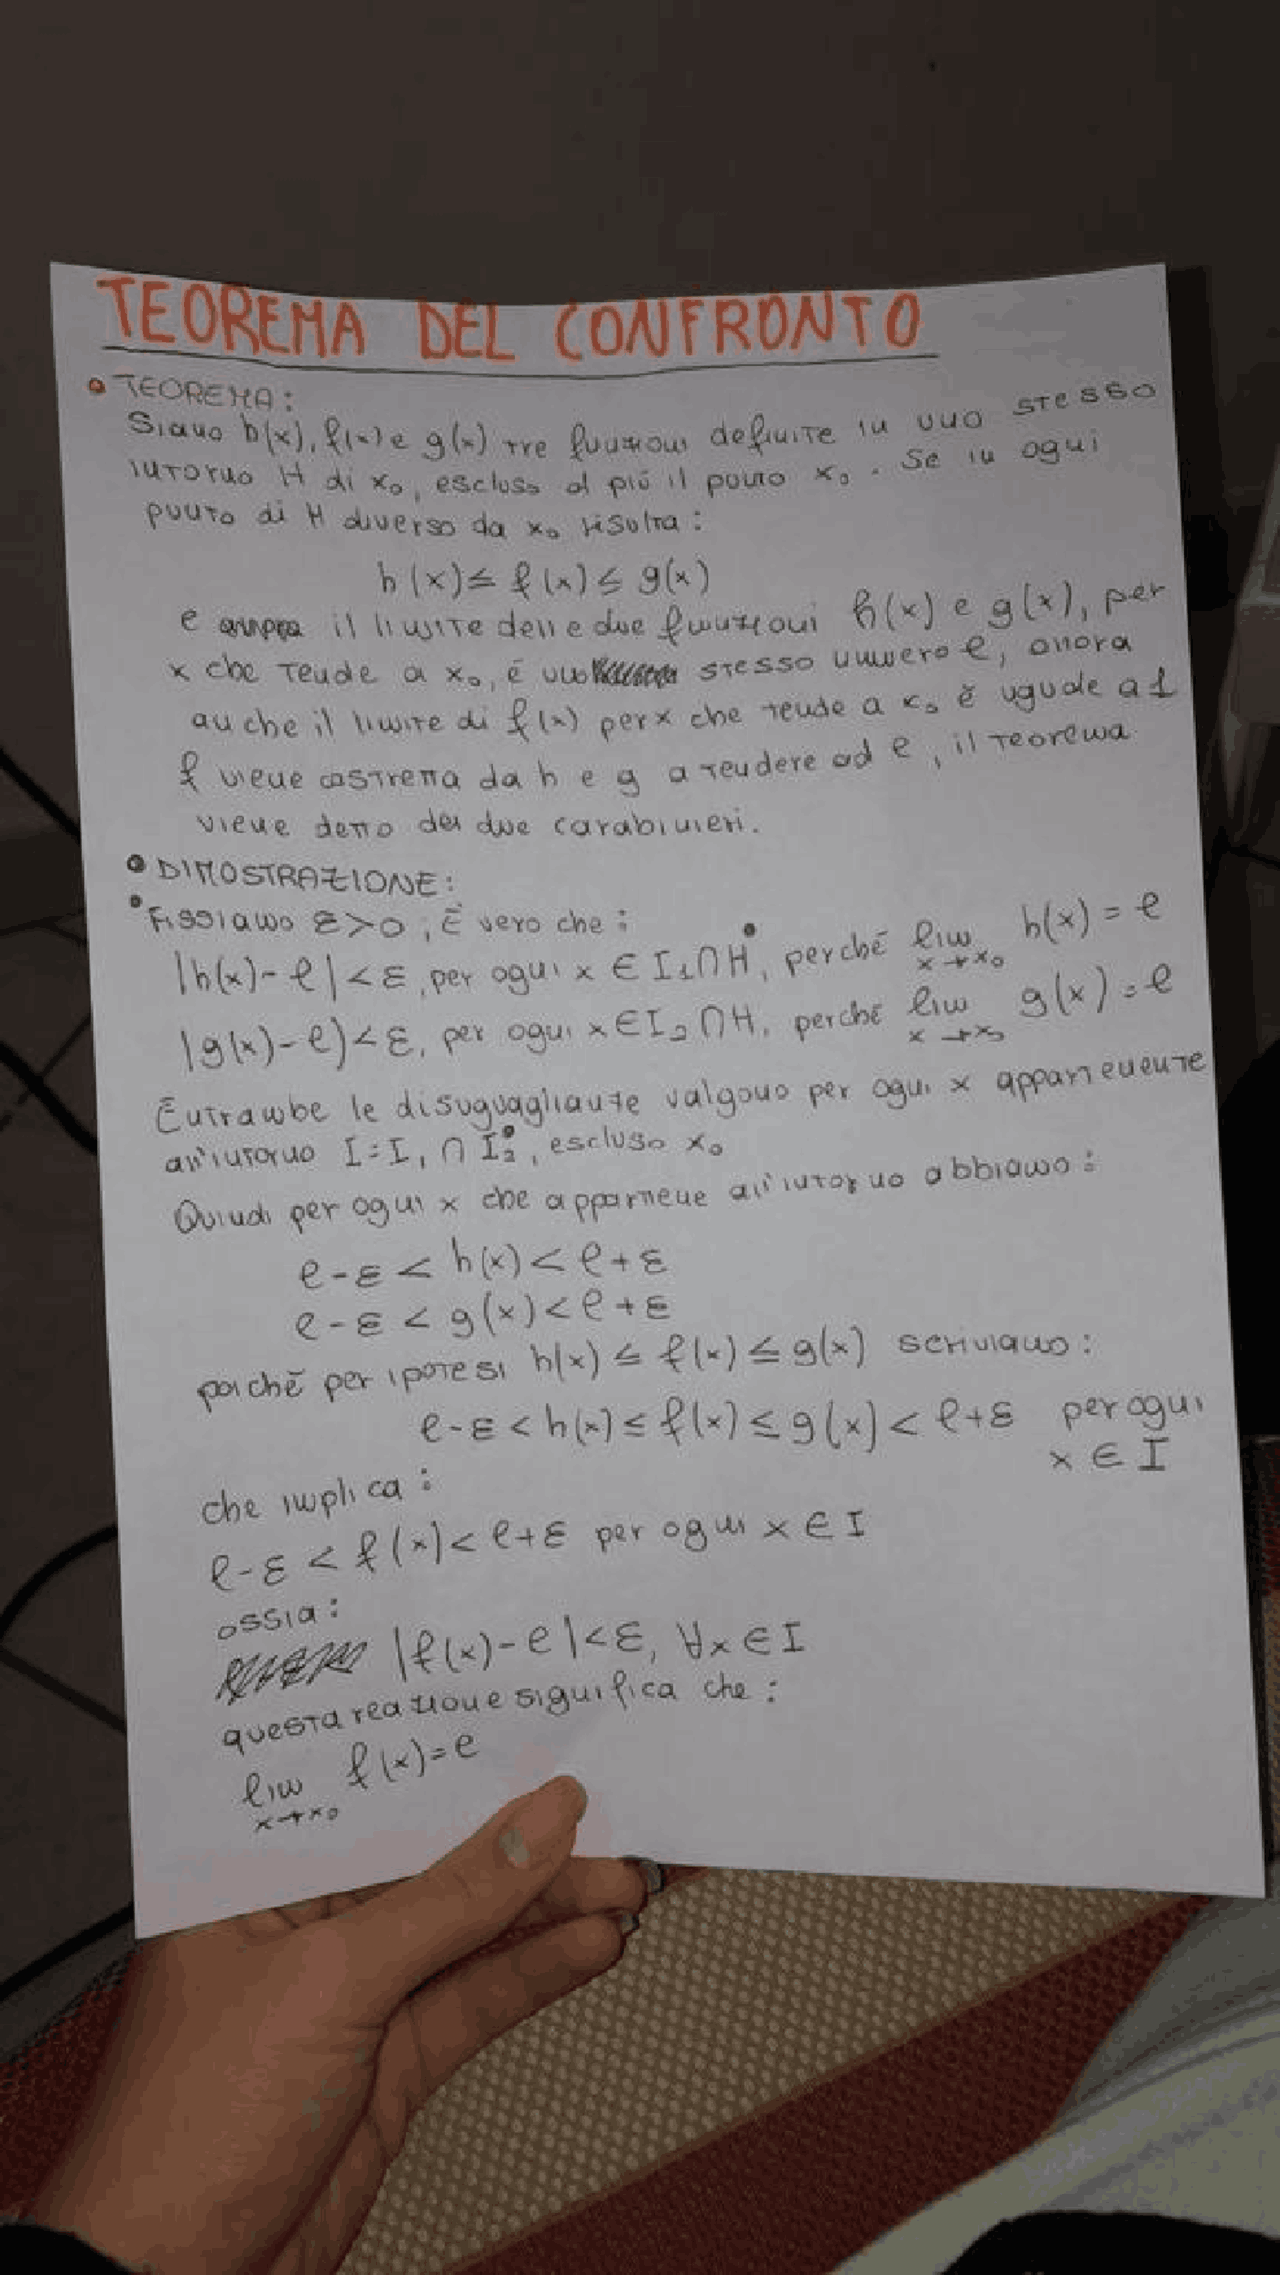 TEOREMA DEL CONFRONTO
• TEOREMA:
Siano h(x), f(x) e g(x) tre funzioni definite in uno stesso
intorno H di x₀, escluso al più il punto x₀. Se in ogni
punto di H diverso da x₀ risulta:
h(x) ≤ f(x) ≤ g(x)
e il limite delle due funzioni h(x) e g(x), per
x che tende a x₀, è uno stesso numero l, allora
anche il limite di f(x) per x che tende a x₀ è uguale a l
f viene costretta da h e g a tendere ad l, il teorema
viene detto dei due carabinieri.
• DIMOSTRAZIONE:
• Fissiamo ε>0, È vero che:
|h(x)-l|<ε, per ogni x ∈ I₁∩H, perché lim x→x₀ h(x) = l
|g(x)-l)<ε, per ogni x∈I₂∩H, perché lim x→x₀ g(x) = l
Entrambe le disuguaglianze valgono per ogni x appartenente
all'intorno I=I₁ ∩ I₂, escluso x₀
Quindi per ogni x che appartiene all'intorno abbiamo:
l-ε < h(x) < l+ε
l-ε < g(x) < l+ε
poiché per ipotesi h(x) ≤ f(x) ≤ g(x) scriviamo:
l-ε < h(x) ≤ f(x) ≤ g(x) < l+ε per ogni
x ∈ I
che implica:
l-ε < f(x) < l+ε per ogni x ∈ I
ossia:
|f(x)-l|<ε, ∀x ∈ I
questa reazione significa che:
lim x→x₀ f(x)=l